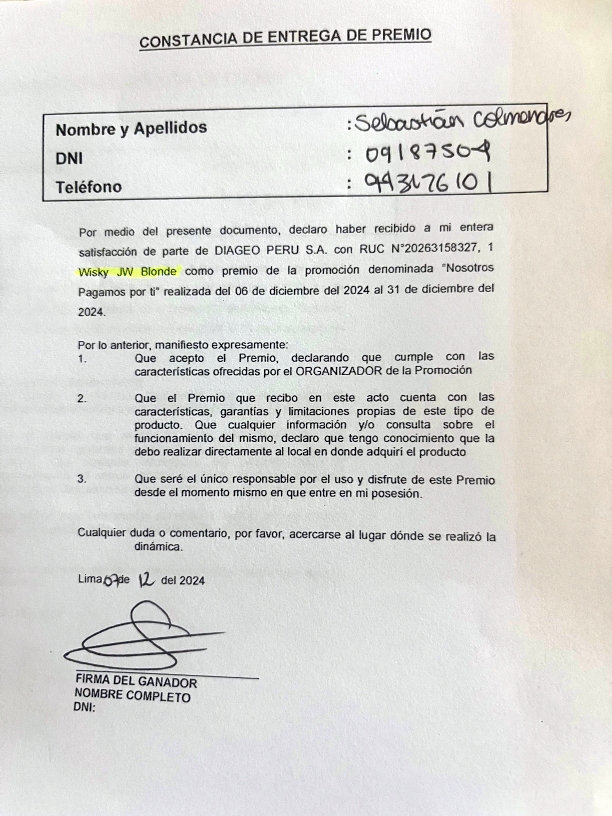 CONSTANCIA DE ENTREGA DE PREMIO
Nombre y Apellidos : Sebastián Colmenares
DNI : 09187504
Teléfono : 943176101
Por medio del presente documento, declaro haber recibido a mi entera
satisfacción de parte de DIAGEO PERU S.A. con RUC N°20263158327, 1
Wisky JW Blonde como premio de la promoción denominada "Nosotros
Pagamos por ti" realizada del 06 de diciembre del 2024 al 31 de diciembre del
2024.
Por lo anterior, manifiesto expresamente:
1. Que acepto el Premio, declarando que cumple con las
características ofrecidas por el ORGANIZADOR de la Promoción
2. Que el Premio que recibo en este acto cuenta con las
características, garantías y limitaciones propias de este tipo de
producto. Que cualquier información y/o consulta sobre el
funcionamiento del mismo, declaro que tengo conocimiento que la
debo realizar directamente al local en donde adquirí el producto
3. Que seré el único responsable por el uso y disfrute de este Premio
desde el momento mismo en que entre en mi posesión.
Cualquier duda o comentario, por favor, acercarse al lugar dónde se realizó la
dinámica.
Lima 07 de 12 del 2024
FIRMA DEL GANADOR
NOMBRE COMPLETO
DNI: